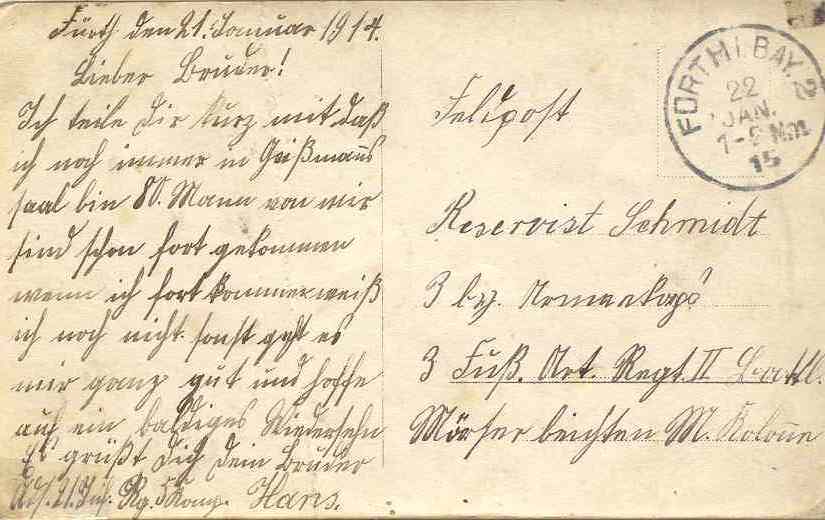 Fürth den 21. Januar 1914.
Lieber Bruder!
Ich teile Dir kurz mit daß
ich noch immer in Geißmanns
saal bin 80. Mann von mir
sind schon fort gekommen
wenn ich fort komme weiß
ich noch nicht. sonst geht es
mir ganz gut und hoffe
auf ein baldiges Wiedersehn
Es grüßt Dich dein Bruder
21. Inf. Rg. Komp. Hans.
Feldpost
FÜRTH I. BAY. 2
22
JAN.
N.m
15
Reservist Schmidt
3 by. Armeekorps
3 Fuß. Art. Regt. II Battl.
Mörser leichten M. Kolonne